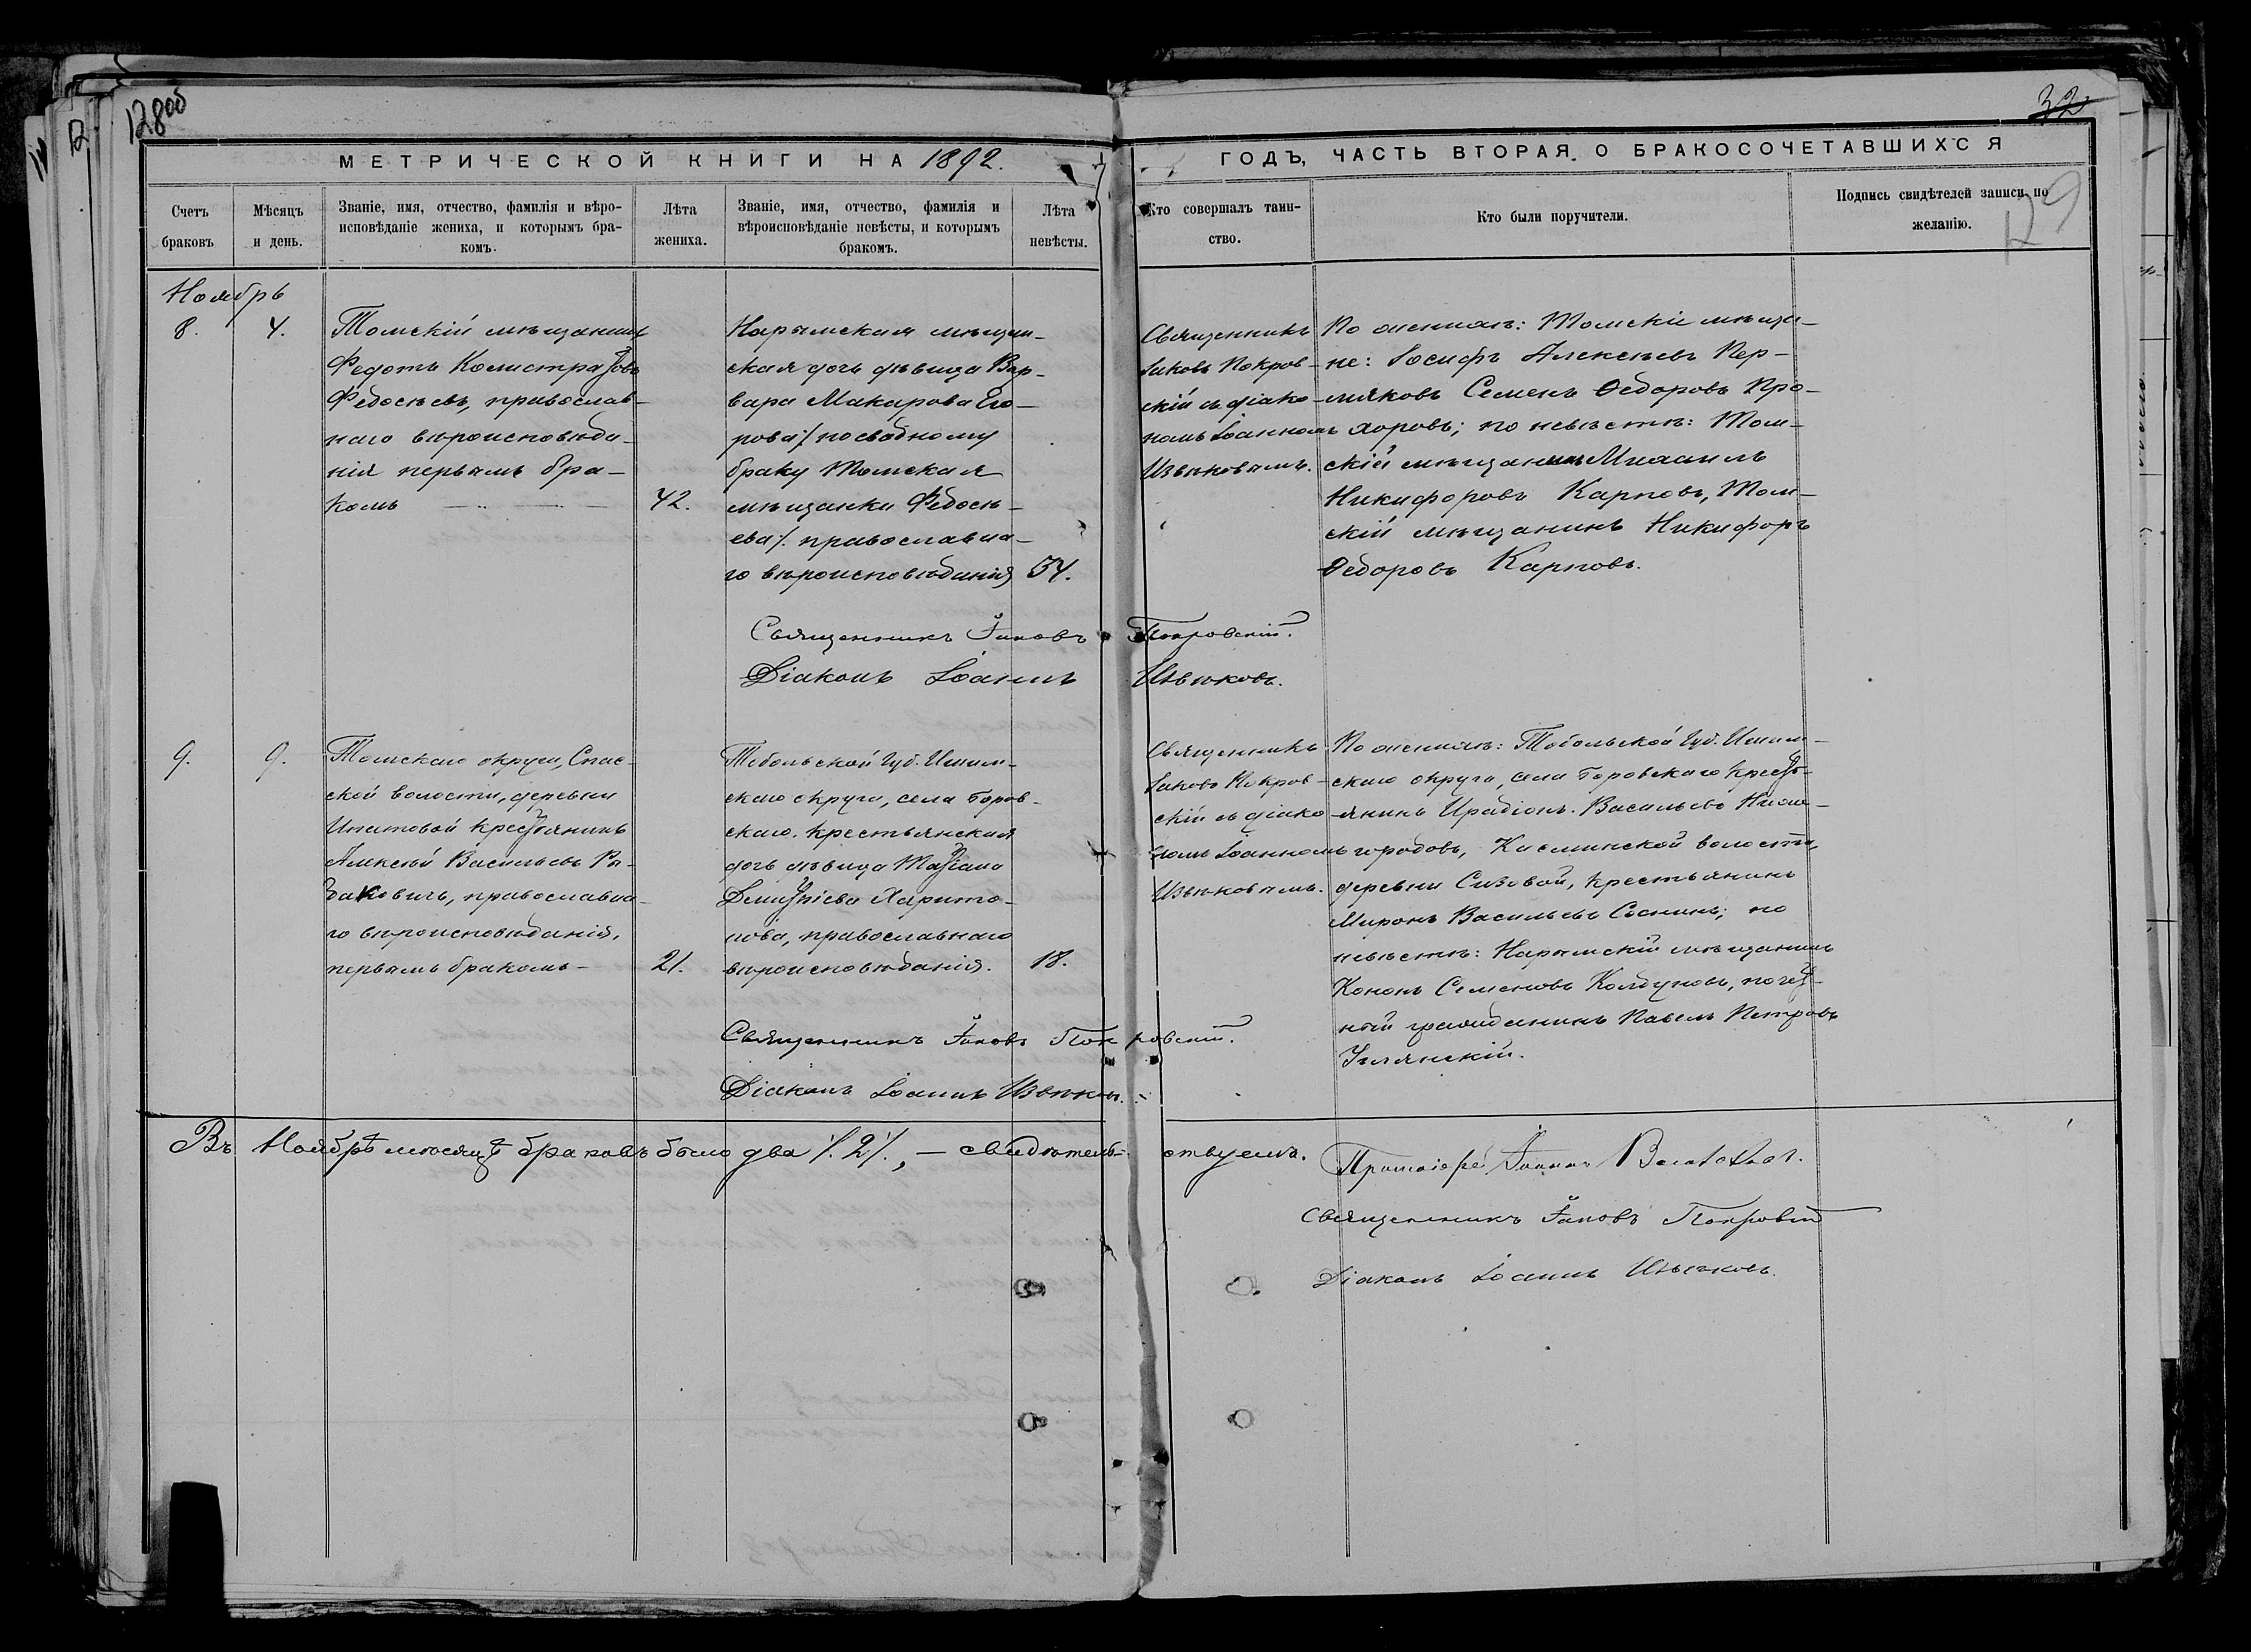 128об
32
129
МЕТРИЧЕСКОЙ КНИГИ НА 1892.
ГОДЪ, ЧАСТЬ ВТОРАЯ, О БРАКОСОЧЕТАВШИХСЯ
Счетъ
браковъ
Мѣсяцъ
и день.
Званіе, имя, отчество, фамилія и вѣро-
исповѣданіе жениха, и которымъ бра-
комъ.
Лѣта
жениха.
Званіе, имя, отчество, фамилія и
вѣроисповѣданіе невѣсты, и которымъ
бракомъ.
Лѣта
невѣсты.
Кто совершалъ таин-
ство.
Кто были поручители.
Подпись свидѣтелей записи по
желанію.
Ноябрь
8.
4.
Томскій мѣщанинъ
Федотъ Каллистратовъ
Федосѣевъ, православ-
наго вѣроисповѣда-
нія первымъ бра-
комъ
42.
Нарымская мѣщан-
ская дочь дѣвица Вар-
вара Макарова Его-
рова /. по свадному
браку Томская
мѣщанка Федосѣ-
ева /. православна-
го вѣроисповѣданія
34.
Священникъ
Іаковъ Покров-
скій съ діако-
номъ Іоанномъ
Извѣковымъ.
По женихѣ: Томскіе мѣща-
не: Іосифъ Алексѣевъ Пер-
мяковъ Семенъ Ѳедоровъ Про-
хоровъ; по невѣстѣ: Том-
скій мѣщанинъ Михаилъ
Никифоровъ Карповъ, Том-
скій мѣщанинъ Никифоръ
Ѳедоровъ Карповъ.
Священникъ Іаковъ Покровскій.
Діаконъ Іоаннъ Извѣковъ.
9.
9.
Томскаго округа, Спас-
ской волости, деревни
Ипатовой крестьянинъ
Алексѣй Васильевъ
православна-
го вѣроисповѣданія,
первымъ бракомъ
21.
Тобольской Губ. Ишим-
скаго округа, села Боров-
скаго крестьянская
дочь дѣвица Татіана
Дементіева Харито-
нова, православнаго
вѣроисповѣданія.
18.
Священникъ
Іаковъ Покров-
скій съ діако-
номъ Іоанномъ
Извѣковымъ.
По женихѣ: Тобольской Губ. Ишим-
скаго округа, села Боровскаго кресть-
янинъ Иродіонъ Васильевъ Ниже-
городовъ, волости,
деревни Сизовой, крестьянинъ
Миронъ Васильевъ Соснинъ; по
невѣстѣ: Нарымскій мѣщанинъ
Кононъ Семеновъ Колдуновъ, почет-
ный гражданинъ Павелъ Петровъ
Углянскій.
Священникъ Іаковъ Покровскій.
Діаконъ Іоаннъ Извѣковъ.
Въ Ноябрѣ мѣсяцѣ браковъ было два /. 2 /., — свидѣтельствуемъ.
Протоіерей Іоаннъ
Священникъ Іаковъ Покровскій
Діаконъ Іоаннъ Извѣковъ.